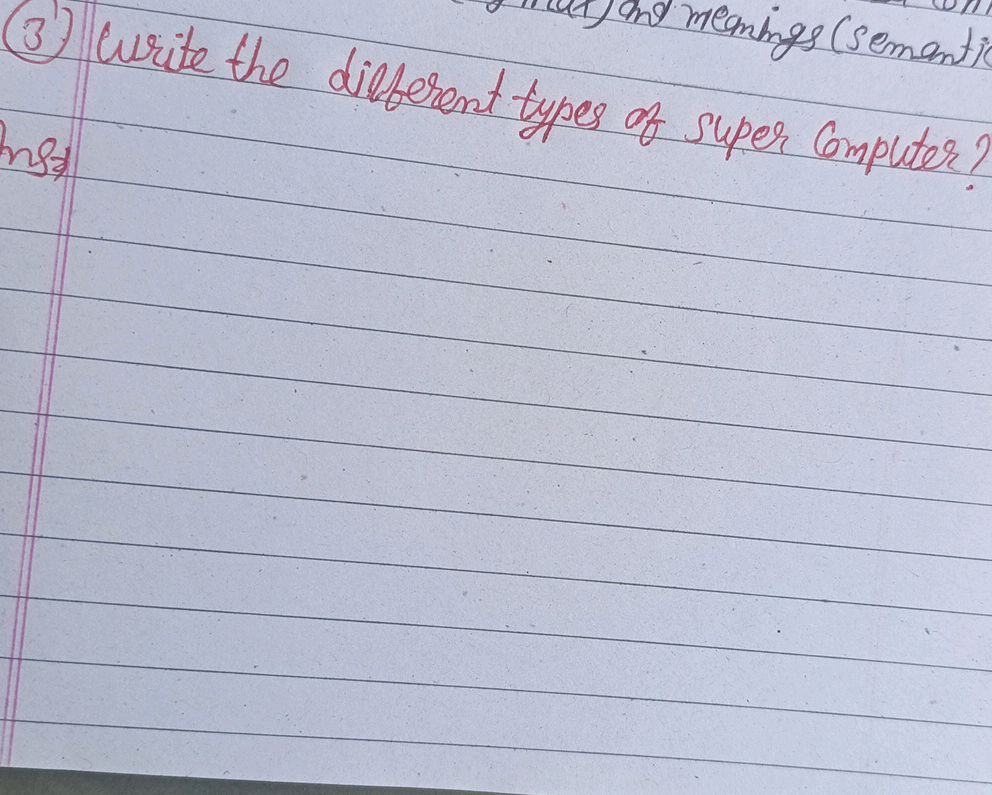 and meanings (semantic
③ Write the different types of super Computer?
Ans→